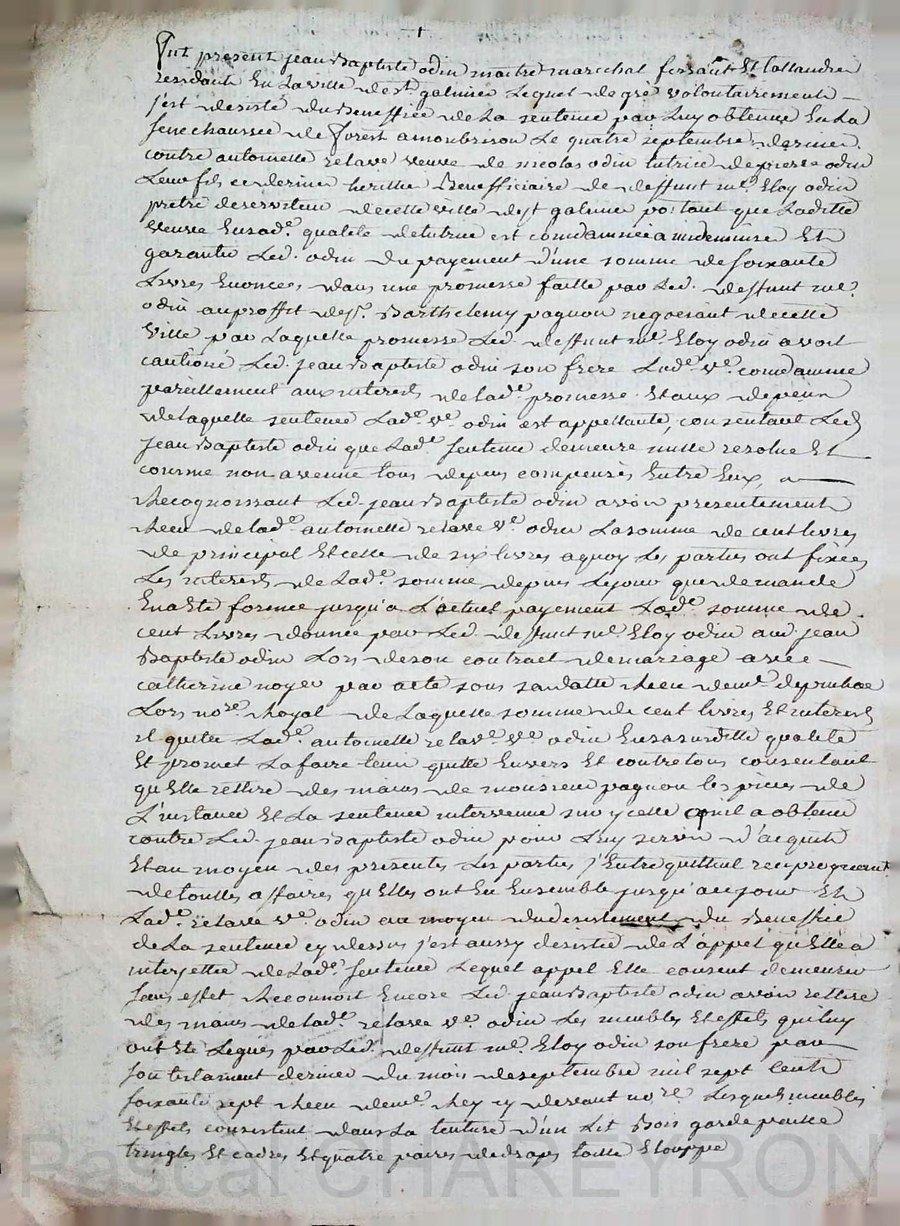 Fut present jean Baptiste odin maitre marechal ferrant Et taillandier
residant En La ville de st galmier Lequel de gré volontairement
s'est desisté du Beneffice de La sentence par Luy obtenue En La
senechaussée de forest a monbrison Le quatre septembre dernier
contre antoinette relave veuve de nicolas odin tutrice de pierre odin
Leur fils ce dernier heritier Benefficiaire de deffunt mre. Eloy odin
pretre deserviteur de cette ville de st galmier portant que Laditte
veuve En sade. qualité de tutrice est condamnée a indemniser Et
garantir Led. odin du payement d'une somme de soixante
Livres Enoncée dans une promesse faitte par Led. deffunt mre.
odin au proffit de sr. Barthelemy pagnon negociant de cette
ville par Laquelle promesse Led. deffunt mre. Eloy odin avoit
cautioné Led. jean Baptiste odin son frere Lade. ve. condamnée
pareillement aux interets de lade. promesse Et aux depens
de laquelle sentence Lade. ve. odin est appellante, consentant Led
jean Baptiste odin que Lade. sentence demeure nulle resolue Et
comme non avenue tous depens compensés Entre Eux,
Recognoissant Led. jean Baptiste odin avoir presentement
Receu de lade. antoinette relave ve. odin La somme de cent livres
de principal Et celle de six livres a quoy Les parties ont fixées
Les interets de Lade. somme depuis Le jour que demande
En a Eté formée jusqu'a L'actuel payement Lade. somme de
cent Livres donnée par Led. deffunt mre. Eloy odin aud. jean
Baptiste odin Lors de son contract de mariage avec
catherine noyer par acte sous sa datte Receu de me.
Lors nore. Royal de Laquelle somme de cent livres Et interets
il quitte Lade. antoinette relave. ve. odin En sa susditte qualité
Et promet La faire tenir quitte Envers Et contre tous consentant
qu'Elle retire des mains de monsieur pagnon les pieces de
L'instance Et La sentence intervenue sur ycelle qu'il a obtenue
contre Led. jean Baptiste odin pour Luy servir d'acquit
Et au moyen des presentes Les parties s'Entrequittent reciproquement
de touttes affaires qu'Elles ont Eu Ensemble jusqu'a ce jour Et
Lade. relave ve. odin au moyen du desistement du Beneffice
de La sentence cy dessus s'est aussy desistée de L'appel qu'Elle a
interjettée de Lade. sentence Lequel appel Elle consent demeurer
sans effet Reconnoit Encore Led. jean Baptiste odin avoir rettiré
des mains de lade. relave ve. odin Les meubles Et effets qui luy
ont Eté Legués par Led. deffunt mre. Eloy odin son frere par
son testament dernier du mois de septembre mil sept Cents
soixante sept Receu de me. Rey cy devant nore. Lesquels meubles
Et effets consistent dans La tenture d'un Lit Bois garde paille
tringles Et cadres Et quatre paires de draps toille Etouppe